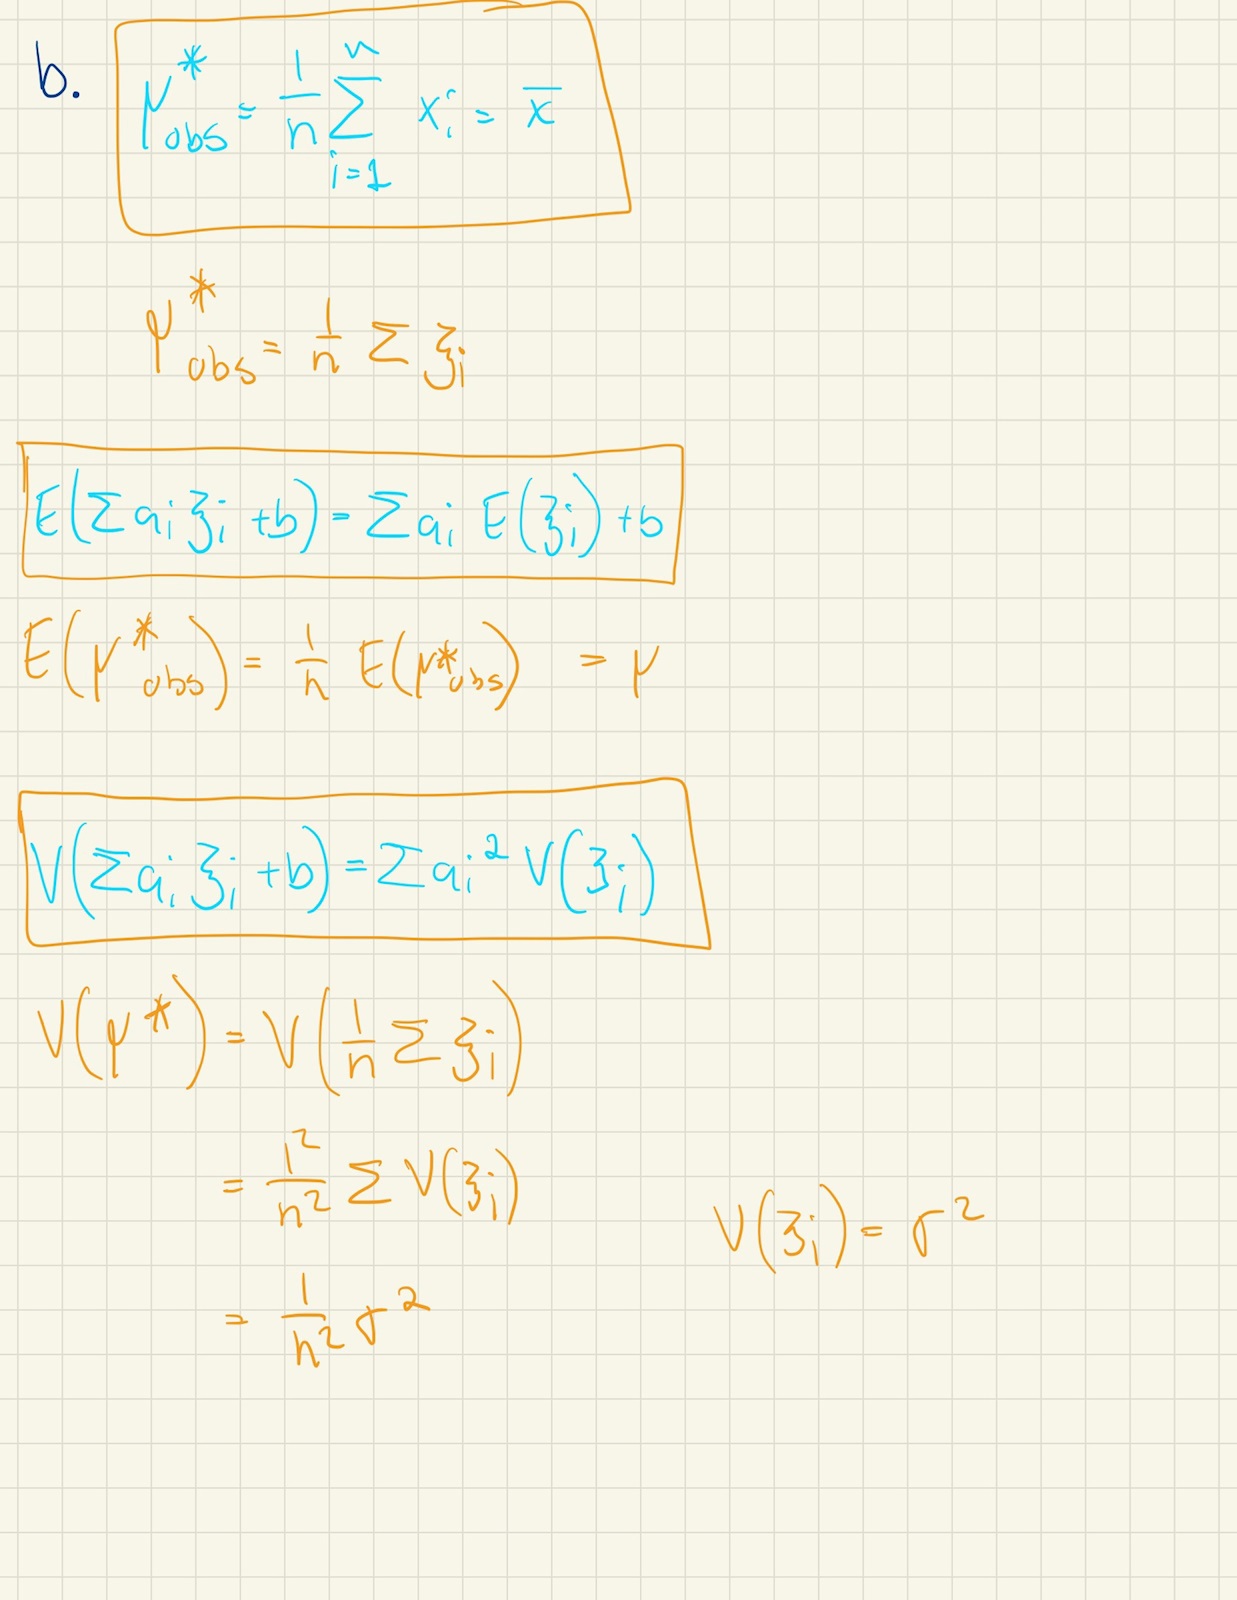 b. μ*obs = 1/n Σ_{i=1}^{n} x_i = x̄
μ*obs = 1/n Σ ξ_i
E(Σ a_i ξ_i + b) = Σ a_i E(ξ_i) + b
E(μ*obs) = 1/n E(μ*obs) = μ
V(Σ a_i ξ_i + b) = Σ a_i² V(ξ_i)
V(μ*) = V(1/n Σ ξ_i)
= 1²/n² Σ V(ξ_i)
V(ξ_i) = σ²
= 1/n² σ²